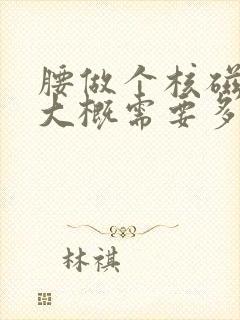 腰做个核磁
大概需要多
林祺